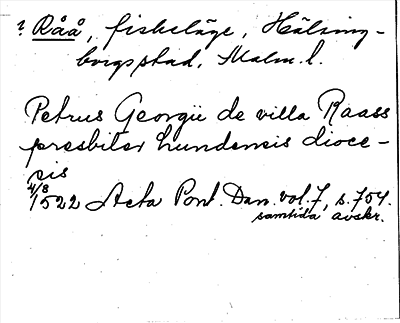 ? Råå, fiskeläge, Hälsing-
borgs stad, Malm. l.
Petrus Georgii de villa Raass
presbiter Lundensis dioce-
sis
4/8 1522 Acta Pont. Dan. vol. 7, s. 754.
samtida avskr.